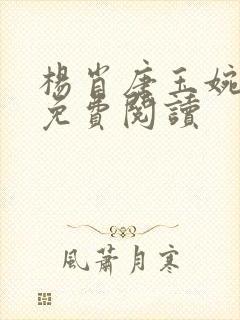 楊肖唐玉婉
免費閱讀
風蕭月寒